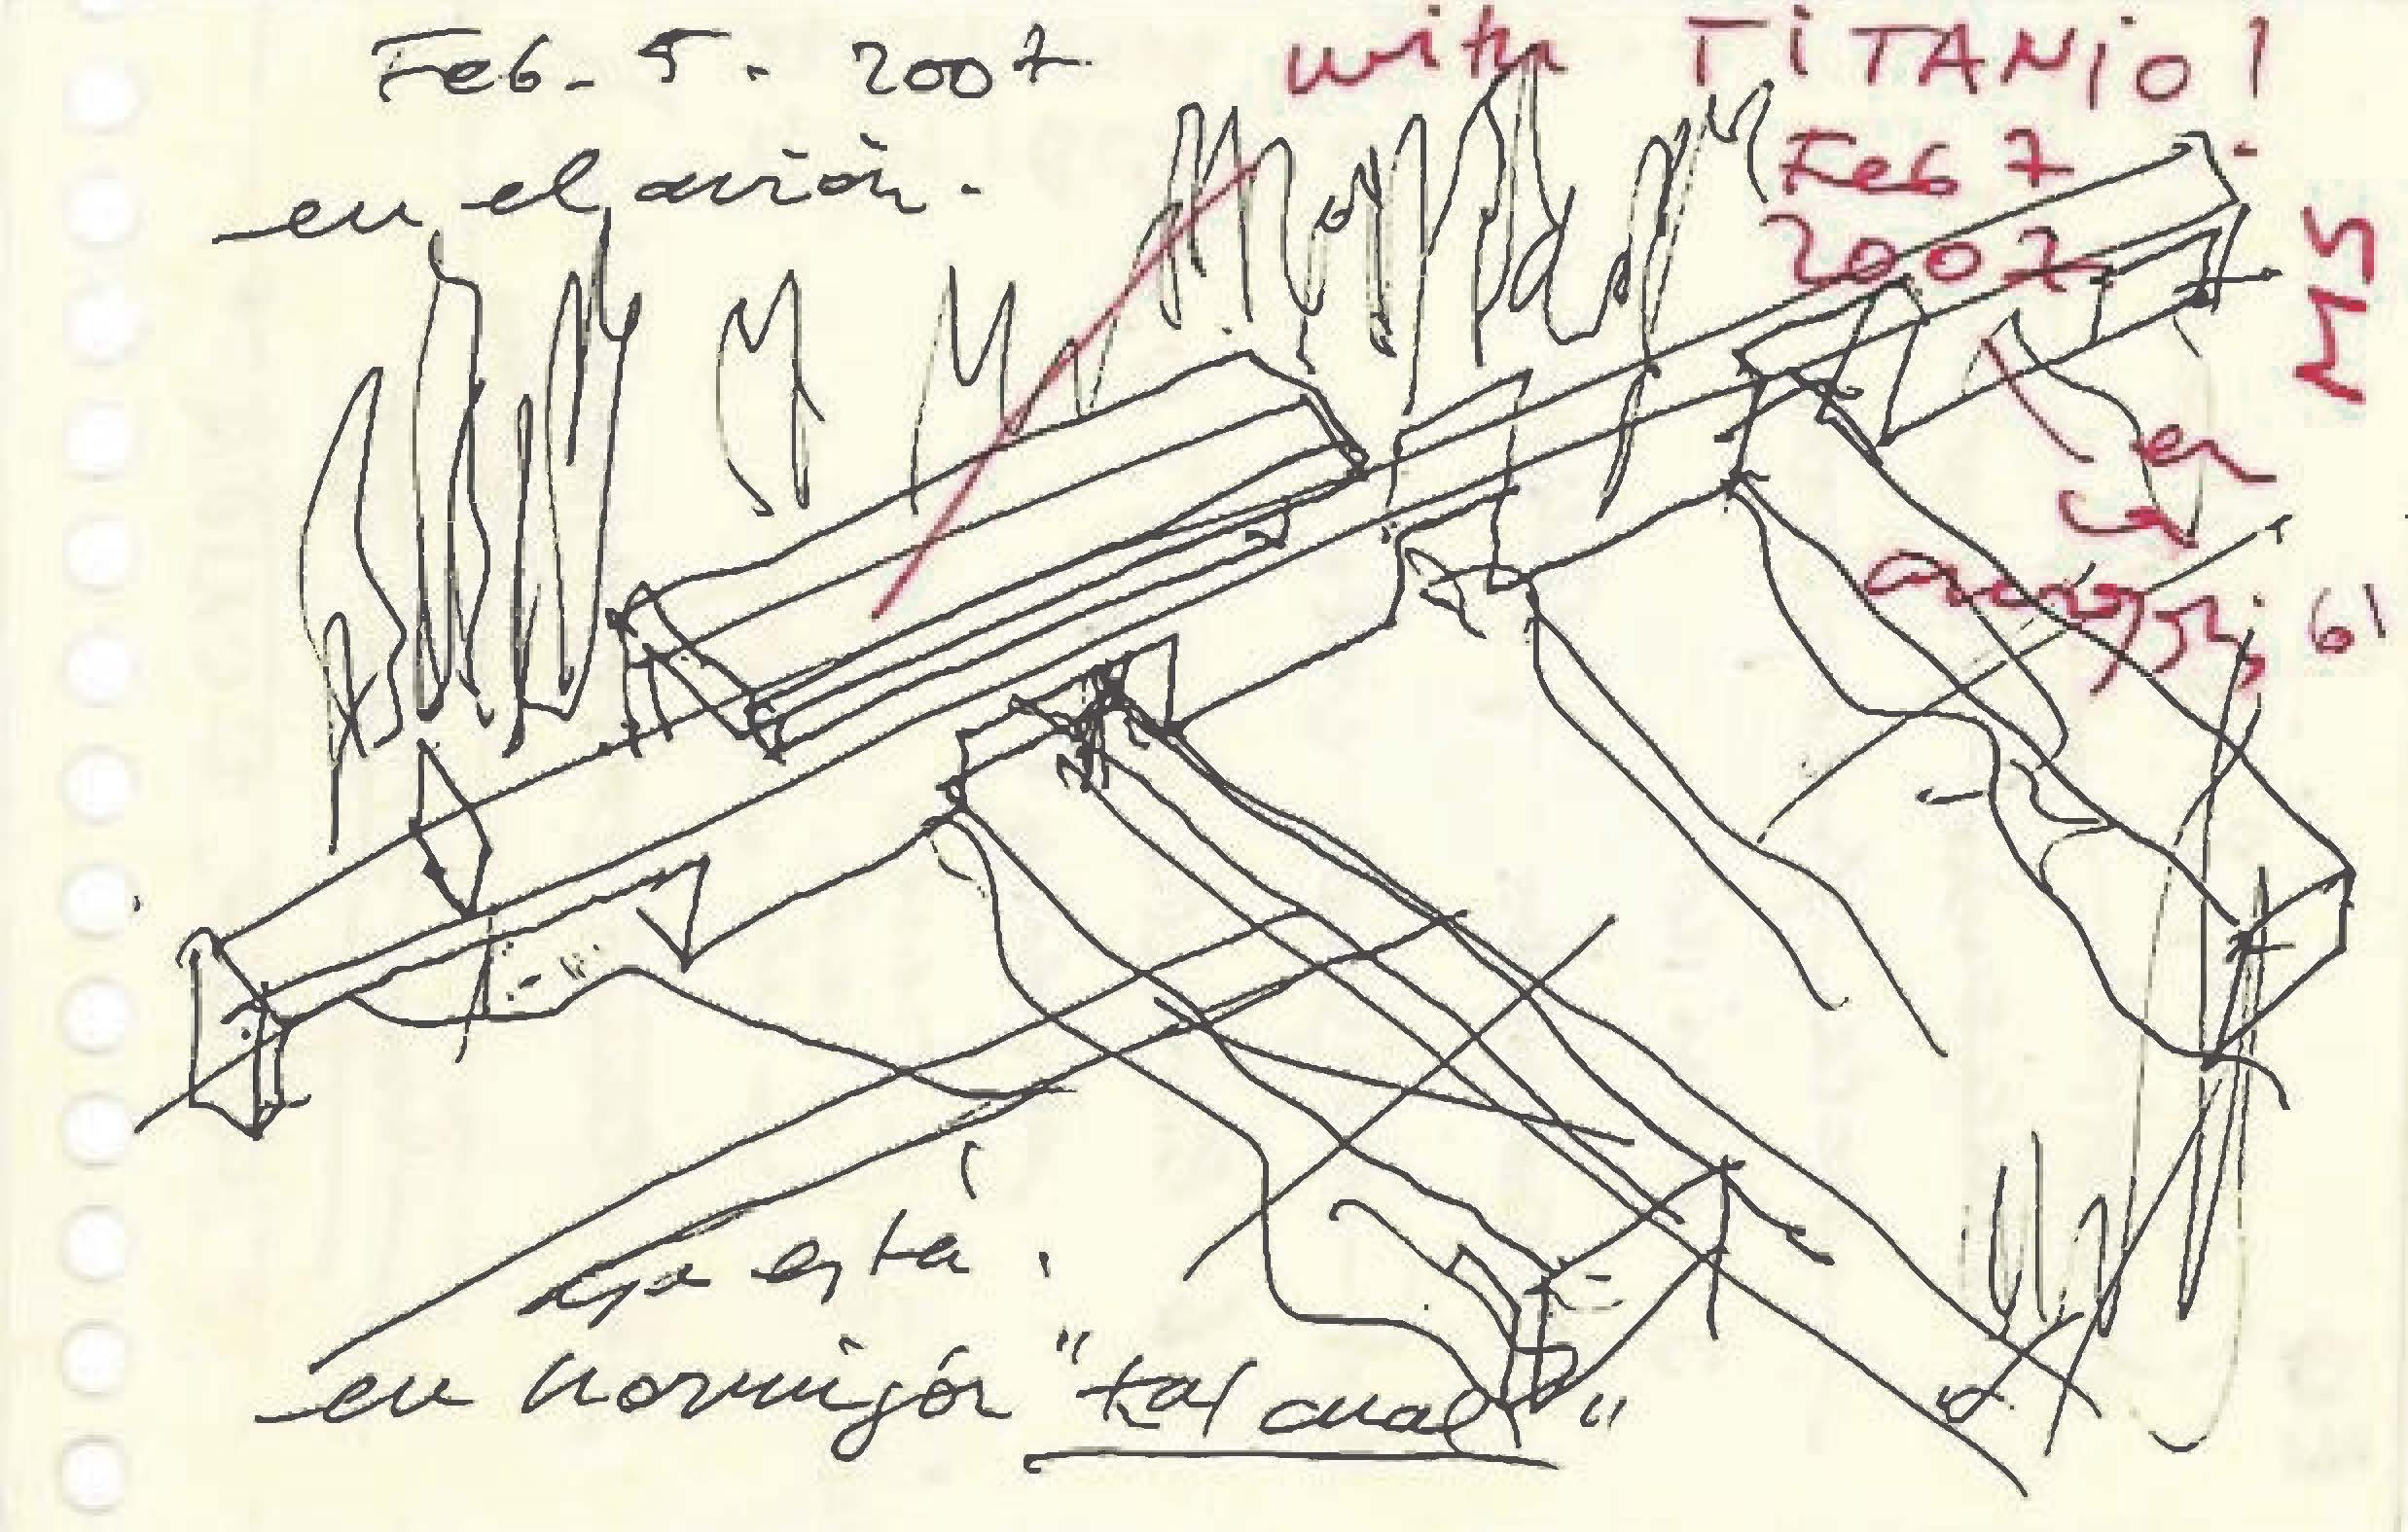 Feb. 5. 2007
en el avión.
with TiTANiO!
Feb 7
2007
MS
en
ya está.
en hormigón "tal cual"